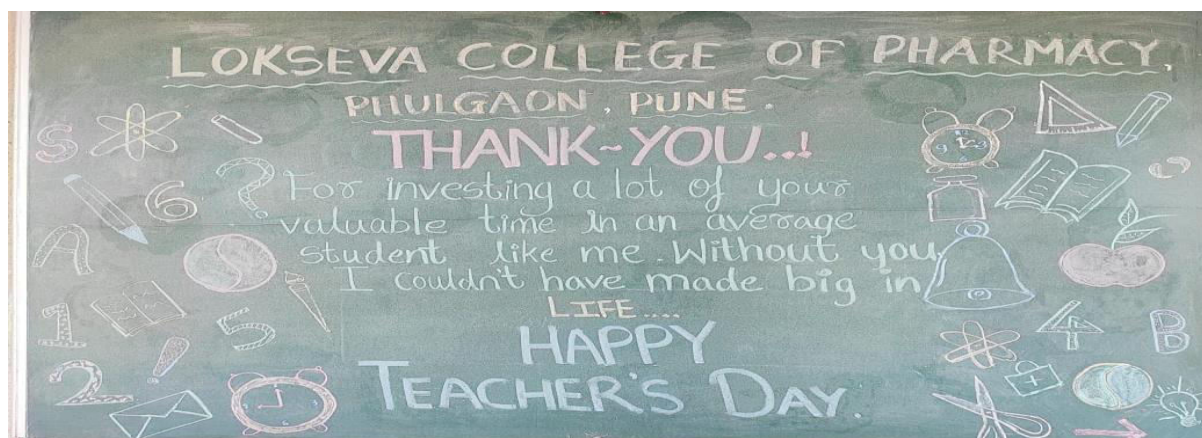 LOKSEVA COLLEGE OF PHARMACY,
PHULGAON, PUNE.
THANK~YOU..!
For investing a lot of your
valuable time in an average
student like me. Without you
I couldn't have made big in
LIFE....
HAPPY
TEACHER'S DAY.
S
6
?
A
1
5
2
!
12
9
3
6
4
B